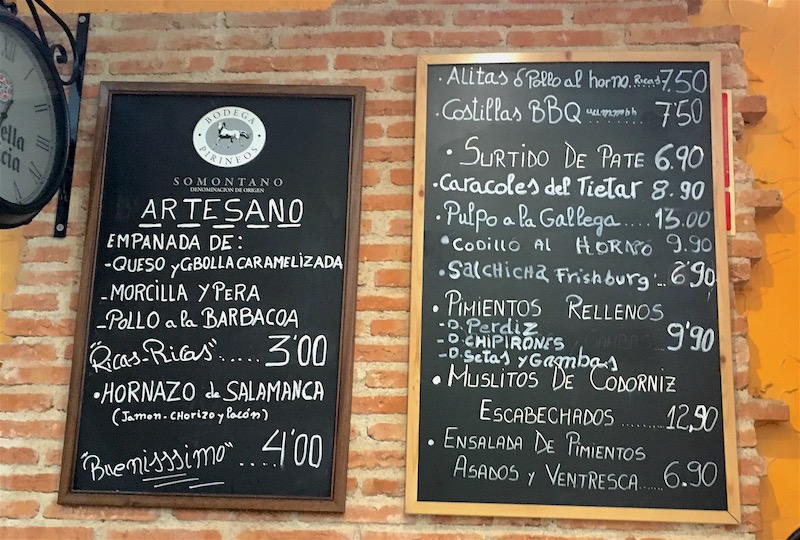 XII
ella
cia
BODEGA PIRINEOS
SOMONTANO
DENOMINACION DE ORIGEN
ARTESANO
EMPANADA DE:
-QUESO y CEBOLLA CARAMELIZADA
-MORCILLA Y PERA
-POLLO a la BARBACOA
"Ricas-Ricas"..... 3'00
•HORNAZO de SALAMANCA
(Jamon-chorizo y Lacón)
"Buenisssimo".... 4'00
•Alitas d Pollo al horno Ricas 7'50
Costillas BBQ 7'50
•SURTIDO DE PATE 6.90
•Caracoles del Tietar 8.90
•Pulpo a la Gallega..... 13.00
•CODILLO AL HORNO 9.90
•Salchicha Frishburg... 6'90
•PIMIENTOS RELLENOS
-D. Perdiz
-D. CHIPIRONES 9'90
-D. Setas y Gambas
•MUSLITOS DE CODORNIZ
ESCABECHADOS ........ 12,90
•ENSALADA DE PIMIENTOS
ASADOS y VENTRESCA...... 6.90